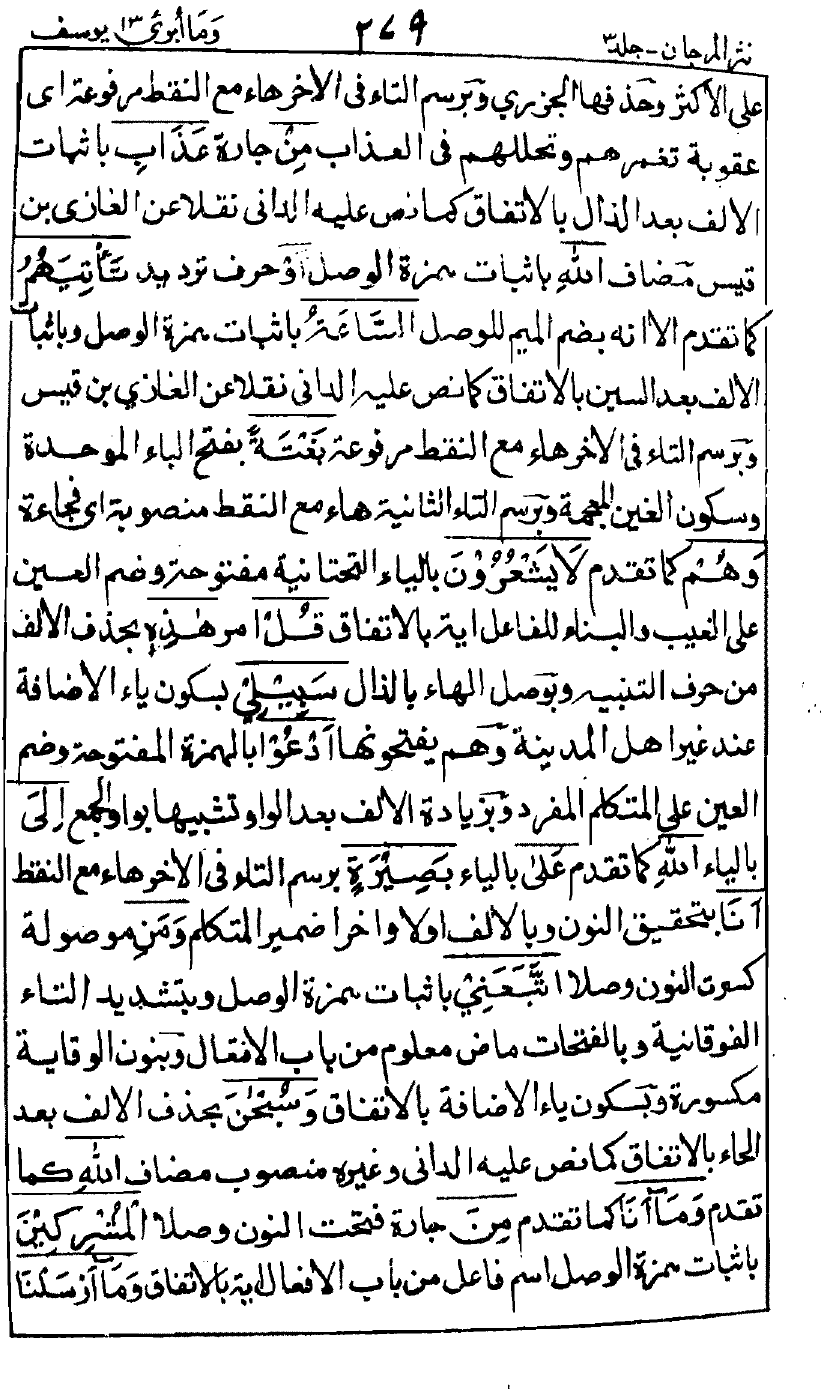 نثر المرجان - جلد ٣ ٢٧٩ وَمَا أبرئ ١٣ يوسف
على الاكثر وحذفها الجزري وَبرسم التاء فى الاخرهاء مع النقط مرفوعة اى
عقوبة تغمرهم وتحللهم فى العذاب مِنْ جارة عَذَابِ باثبات
الالف بعد الذال بالاتفاق كما نص عليه الدانى نقلا عن الغازى بن
قيس مضاف اللّٰهِ باثبات همزة الوصل اَوْ حرف ترديد تَأْتِيَهُمُ
كما تقدم الا انه بضم الميم للوصل السَّاعَةُ باثبات همزة الوصل وباثبات
الالف بعد السين بالاتفاق كما نص عليه الدانى نقلا عن الغازي بن قيس
وَبرسم التاء فى الاخرهاء مع النقط مرفوعة بَغْتَةً بفتح الباء الموحدة
وسكون الغين المعجمة وَبرسم التاء الثانية هاء مع النقط منصوبة اى فجاءة
وَهُمْ كما تقدم لَا يَشْعُرُوْنَ بالياء التحتانية مفتوحة وضم العين
على الغيب والبناء للفاعل اية بالاتفاق قُلْ امر هٰذِهٖ بحذف الالف
من حرف التنبيه وبوصل الهاء بالذال سَبِيْلِيْ بسكون ياء الاضافة
عند غير اهل المدينة وَهم يفتحونها اَدْعُوْا بالهمزة المفتوحة وضم
العين على المتكلم المفرد وَبزيادة الالف بعد الواو تشبيها بواو الجمع اِلَى
بالياء اللّٰهِ كما تقدم عَلٰى بالياء بَصِيْرَةٍ برسم التاء فى الاخرهاء مع النقط
اَنَا بتحقيق النون وبالالف اولا واخرا ضمير المتكلم وَمَنِ موصولة
كسرت النون وصلا اتَّبَعَنِيْ باثبات همزة الوصل وبتشديد التاء
الفوقانية وبالفتحات ماض معلوم من باب الافتعال وَبنون الوقاية
مكسورة وَبسكون ياء الاضافة بالاتفاق وَسُبْحٰنَ بحذف الالف بعد
الحاء بالاتفاق كما نص عليه الدانى وغيره منصوب مضاف اللّٰهِ كما
تقدم وَمَا اَنَا كما تقدم مِنَ جارة فتحت النون وصلا الْمُشْرِكِيْنَ
باثبات همزة الوصل اسم فاعل من باب الافعال اية بالاتفاق وَمَا اَرْسَلْنَا